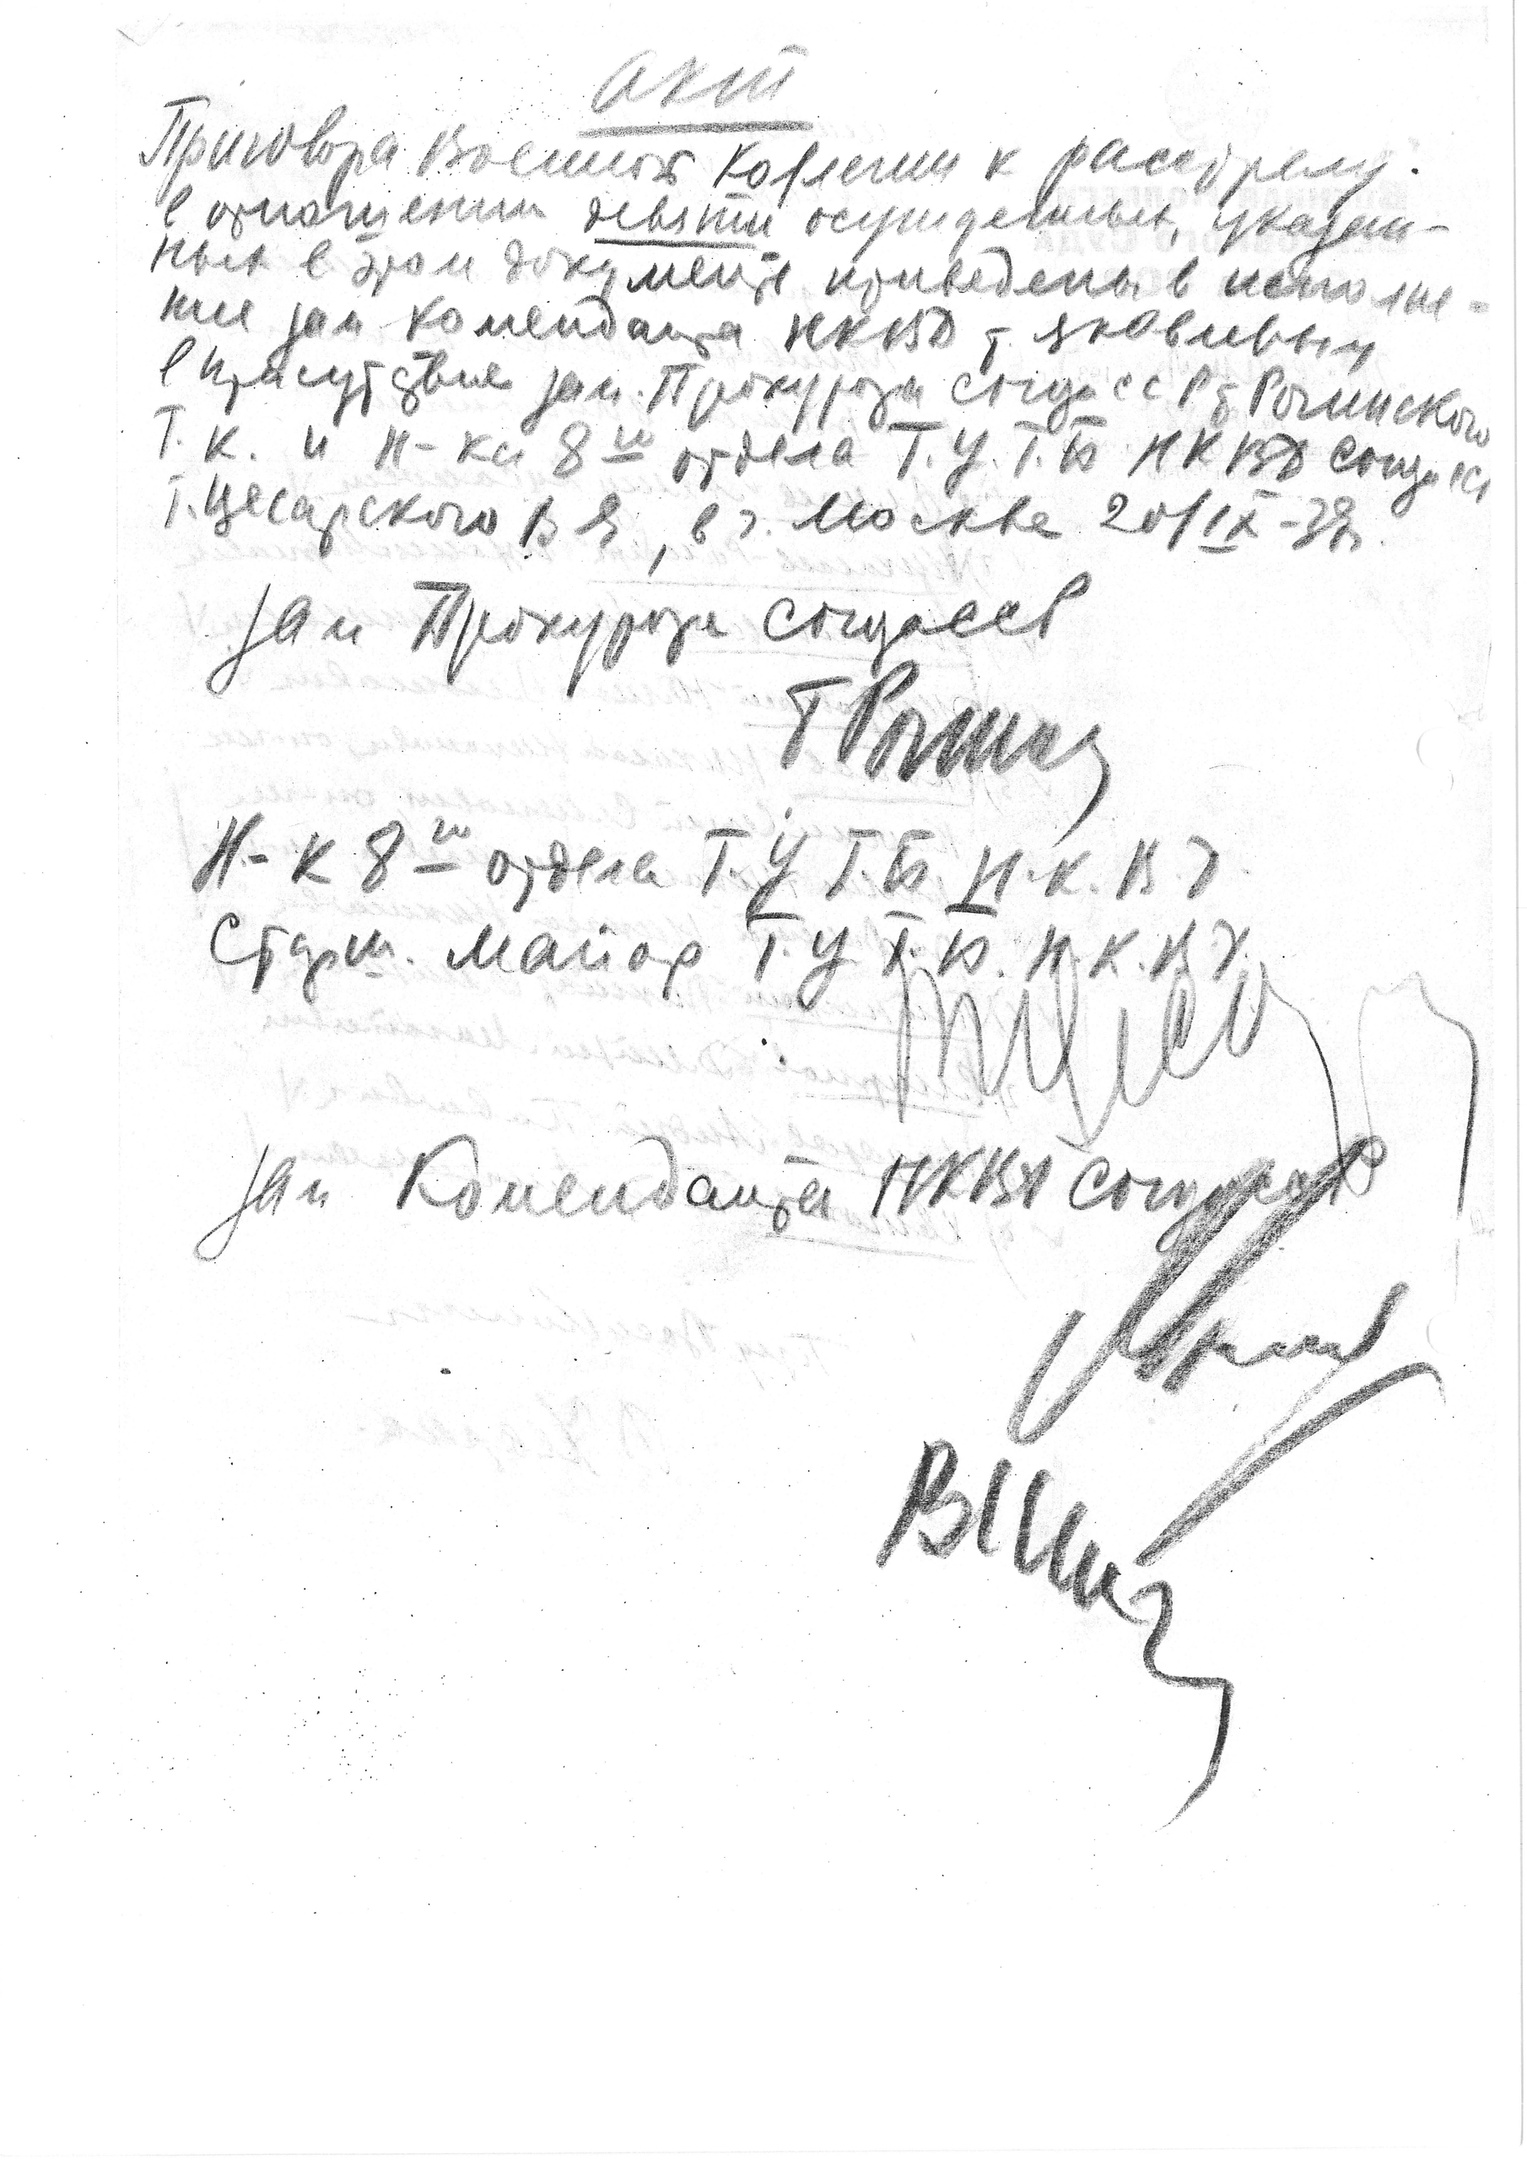 Акт
Приговора Военной Коллегии к расстрелу.
в отношении девяти осужденных, указан-
ных в этом документе приведены в исполне-
ние зам Коменданта НКВД т. Яковлевым
в присутствие зам. Прокурора Союза ССР т Рогинского
Т. К. и Н-ка 8го отдела Г.У.Г.Б НКВД Союза ССР
т. Цесарского В Я, в г. Москве 20/IX-38г.
Зам Прокурора Союза ССР
Г Рогинс
Н-к 8го отдела Г.У Г.Б Н.К.В.Д.
Старш. Майор Г.У Г.Б. Н.К.В.Д.
Зам Коменданта НКВД Союза ССР